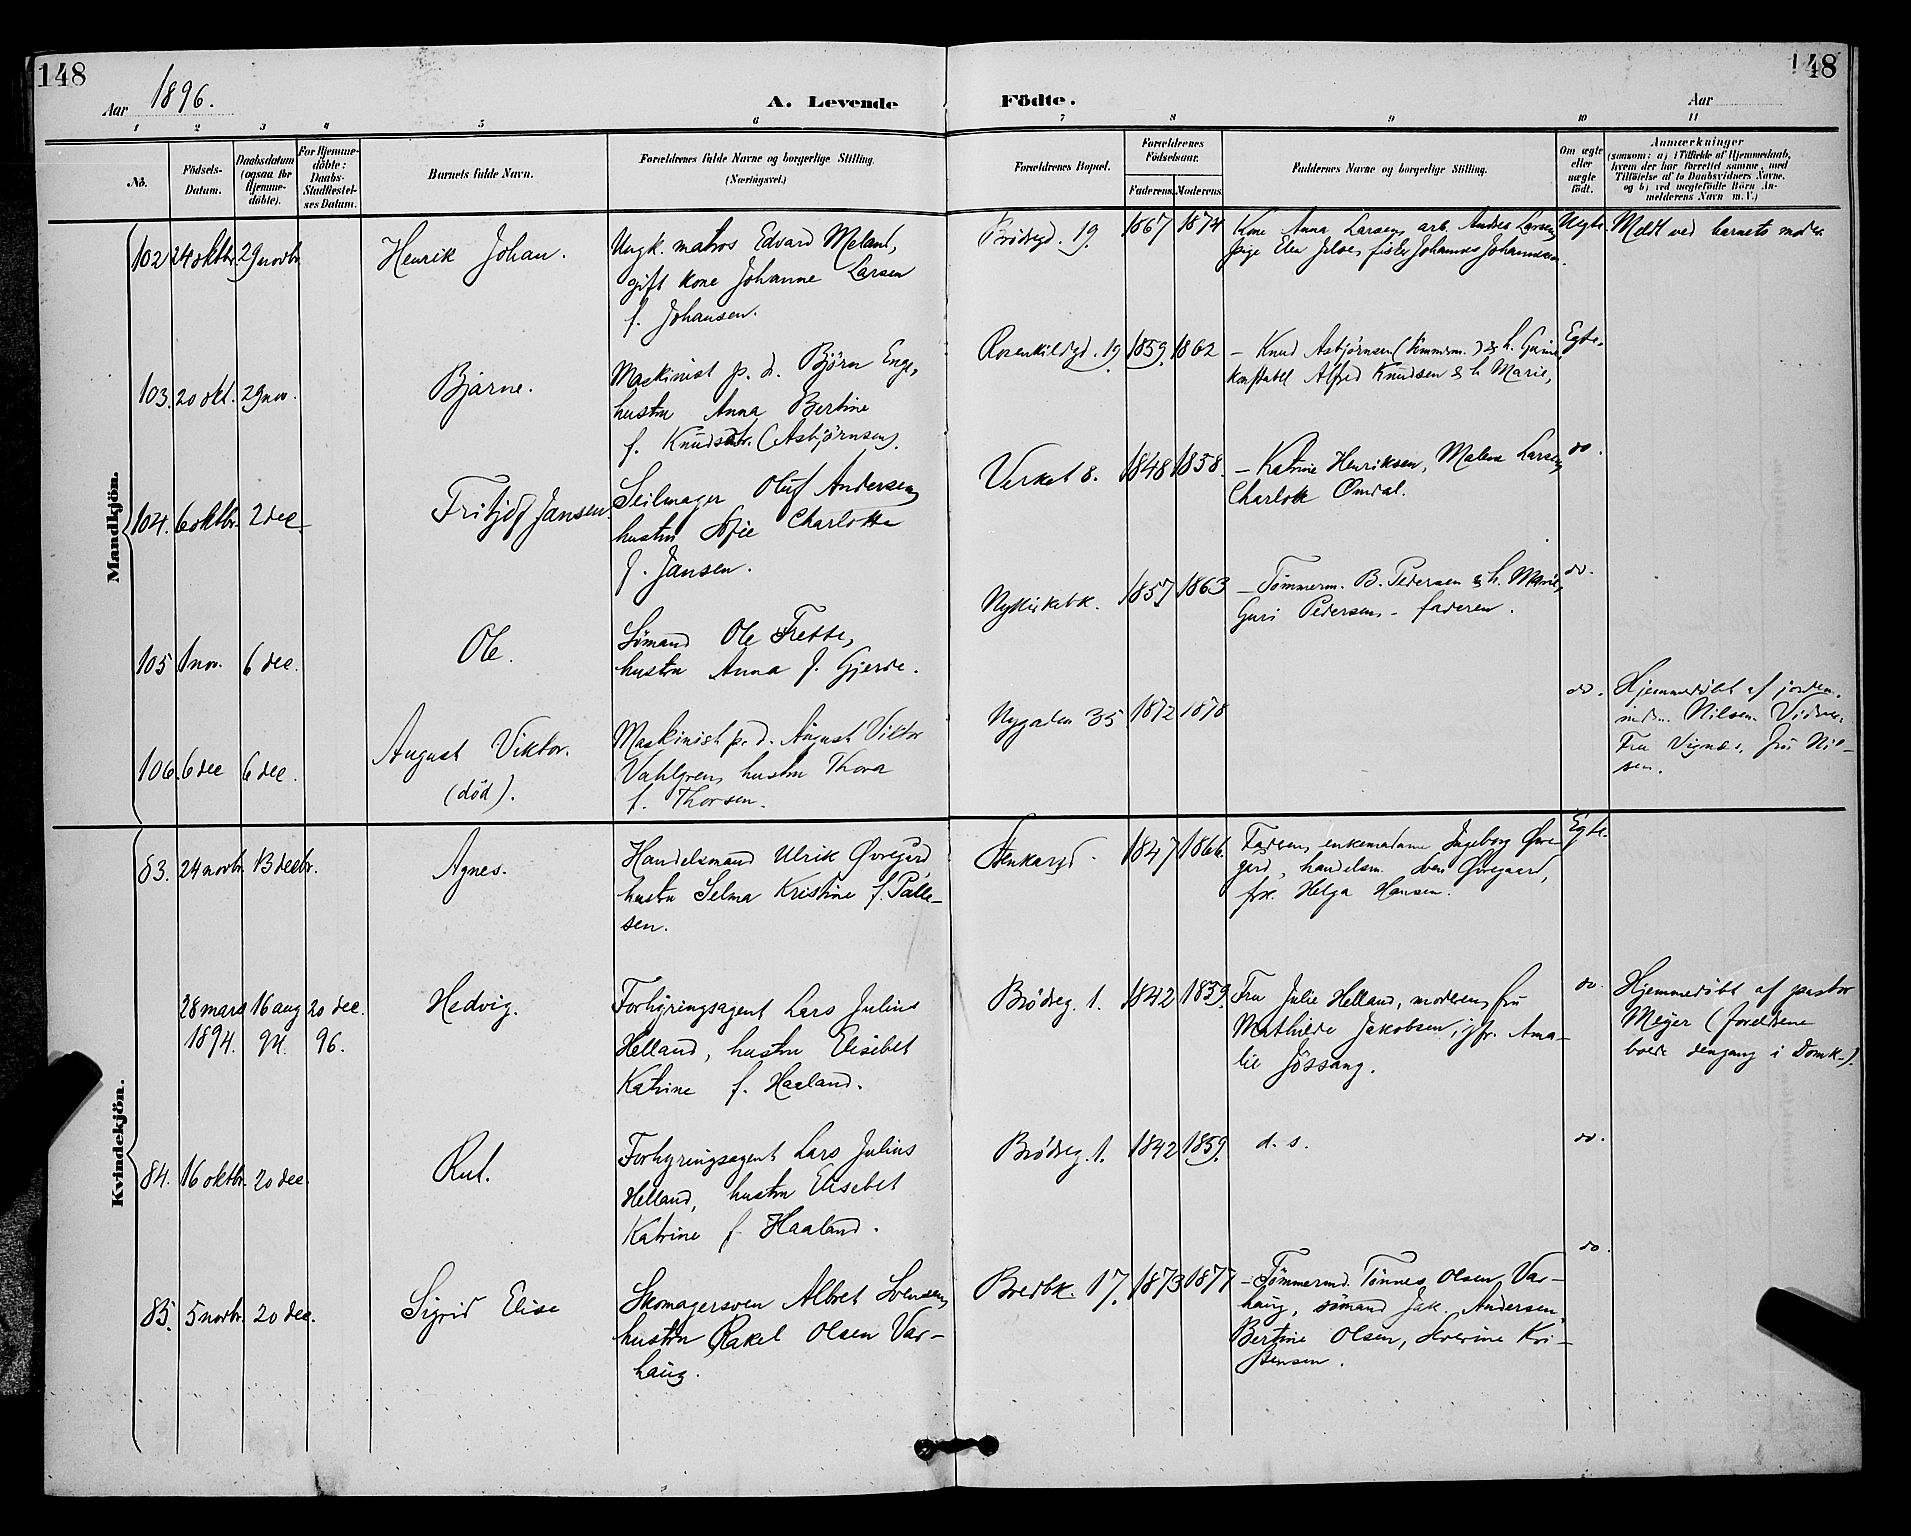 148
148
Aar 1896.
A. Levende Födte.
Aar
1 2 3 4 5 6 7 8 9 10 11
No.
Födsels-Datum.
Daabsdatum (ogsaa for Hjemme-döbte).
For Hjemme-döbte: Daabs-Stadfæstel-ses Datum.
Barnets fulde Navn.
Forældrenes fulde Navne og borgerlige Stilling.
(Næringsvei.)
Forældrenes Bopæl.
Forældrenes Födselsaar.
Faderens. Moderens.
Faddernes Navne og borgerlige Stilling.
Om ægte eller uægte födt.
Anmærkninger
(saasom: a) i Tilfælde af Hjemmedaab,
hvem der har forrettet samme, med
Tilföielse af to Daabsvidners Navne,
og b) ved uægtefödte Börn An-
melderens Navn m. V.)
Mandkjön.
102 24 oktbr. 29 novbr.
Henrik Johan.
Ungk. matros Edvard Meland,
gift kone Johanne Larsen
f. Johansen.
Brødregd. 19.
1867 1874
Kone Anna Larsen, arb. Andres Larsen,
pige Elen fisker Johannes Johannesen.
Uegte.
Meldt ved barnets moder
103. 20 okt. 29 nov.
Bjarne.
Maskinist p. d. Björn Enge,
hustru Anna Bertine
f. Knudsdtr. (Asbjørnsen).
Rosenkildegd. 19
1859. 1862
– Knud Asbjørnsen (tømmerm.) & h.
konstabel Alfred Knudsen & h. Marie,
Egte.
104. 6 oktbr. 2 dec.
Fritjof Jansen.
Seilmager Oluf Andersen,
hustru Sofie Charlotte
f. Jansen.
Verket 8.
1848 1858.
– Katrine Henriksen, Malene Larsen,
Charlotte Omdal.
do.
105 1 nov. 6 dec.
Ole.
Sømand Ole Trette,
hustru Anna f. Gjerde.
Nykirkebk.
1857 1863
– Tømmerm. B. Pedersen & h. Marie,
Guri Pedersen – faderen.
do.
106. 6 dec 6 dec.
August Viktor.
(død).
Maskinist p. d. August Viktor
Vahlgren, hustru Thora
f. Thorsen.
Nygaden 35
1872 1878
do.
Hjemmedøbt af jordem.
mdm. Nilsen. Vidner:
Fru Vignæs, fru Nil-
sen.
Kvindekjön.
83. 24 novbr. 13 decbr.
Agnes.
Handelsmand Ulrik Øvregård
hustru Selma Kristine f. Palle-
sen.
Stenkargd.
1847 1866.
Faderen, enkemadame Ingeborg Øvre-
gård, handelsm. Sven Øvregaard,
frk. Helga Hansen.
Egte.
28 mars 16 aug 20 dec.
1894. 94. 96.
Hedvig.
Forhyringsagent Lars Julius
Helland, hustru Elisebet
Katrine f. Haaland.
Brødreg. 1.
1842 1859.
Fru Julie Helland, moderen, fru
Mathilde Jakobsen, jfr. Ama-
lie Jössang.
do.
Hjemmedøbt af pastor
Meyer (forældrene
boede dengang i Domk.).
84. 16 oktbr. 20 dec.
Rut.
Forhyringsagent Lars Julius
Helland, hustru Elisebet
Katrine f. Haaland.
Brødreg. 1.
1842 1859.
d. s.
do.
85. 5 novbr. 20 dec.
Sigrid Elise
Skomagersven Albret Svensen,
hustru Rakel Olsen Var-
haug.
Bredbk. 17.
1873 1877
– Tømmermd. Tönnes Olsen Var-
haug, sömand Jak. Andersen,
Bertine Olsen, Severine Kri-
stensen.
do.